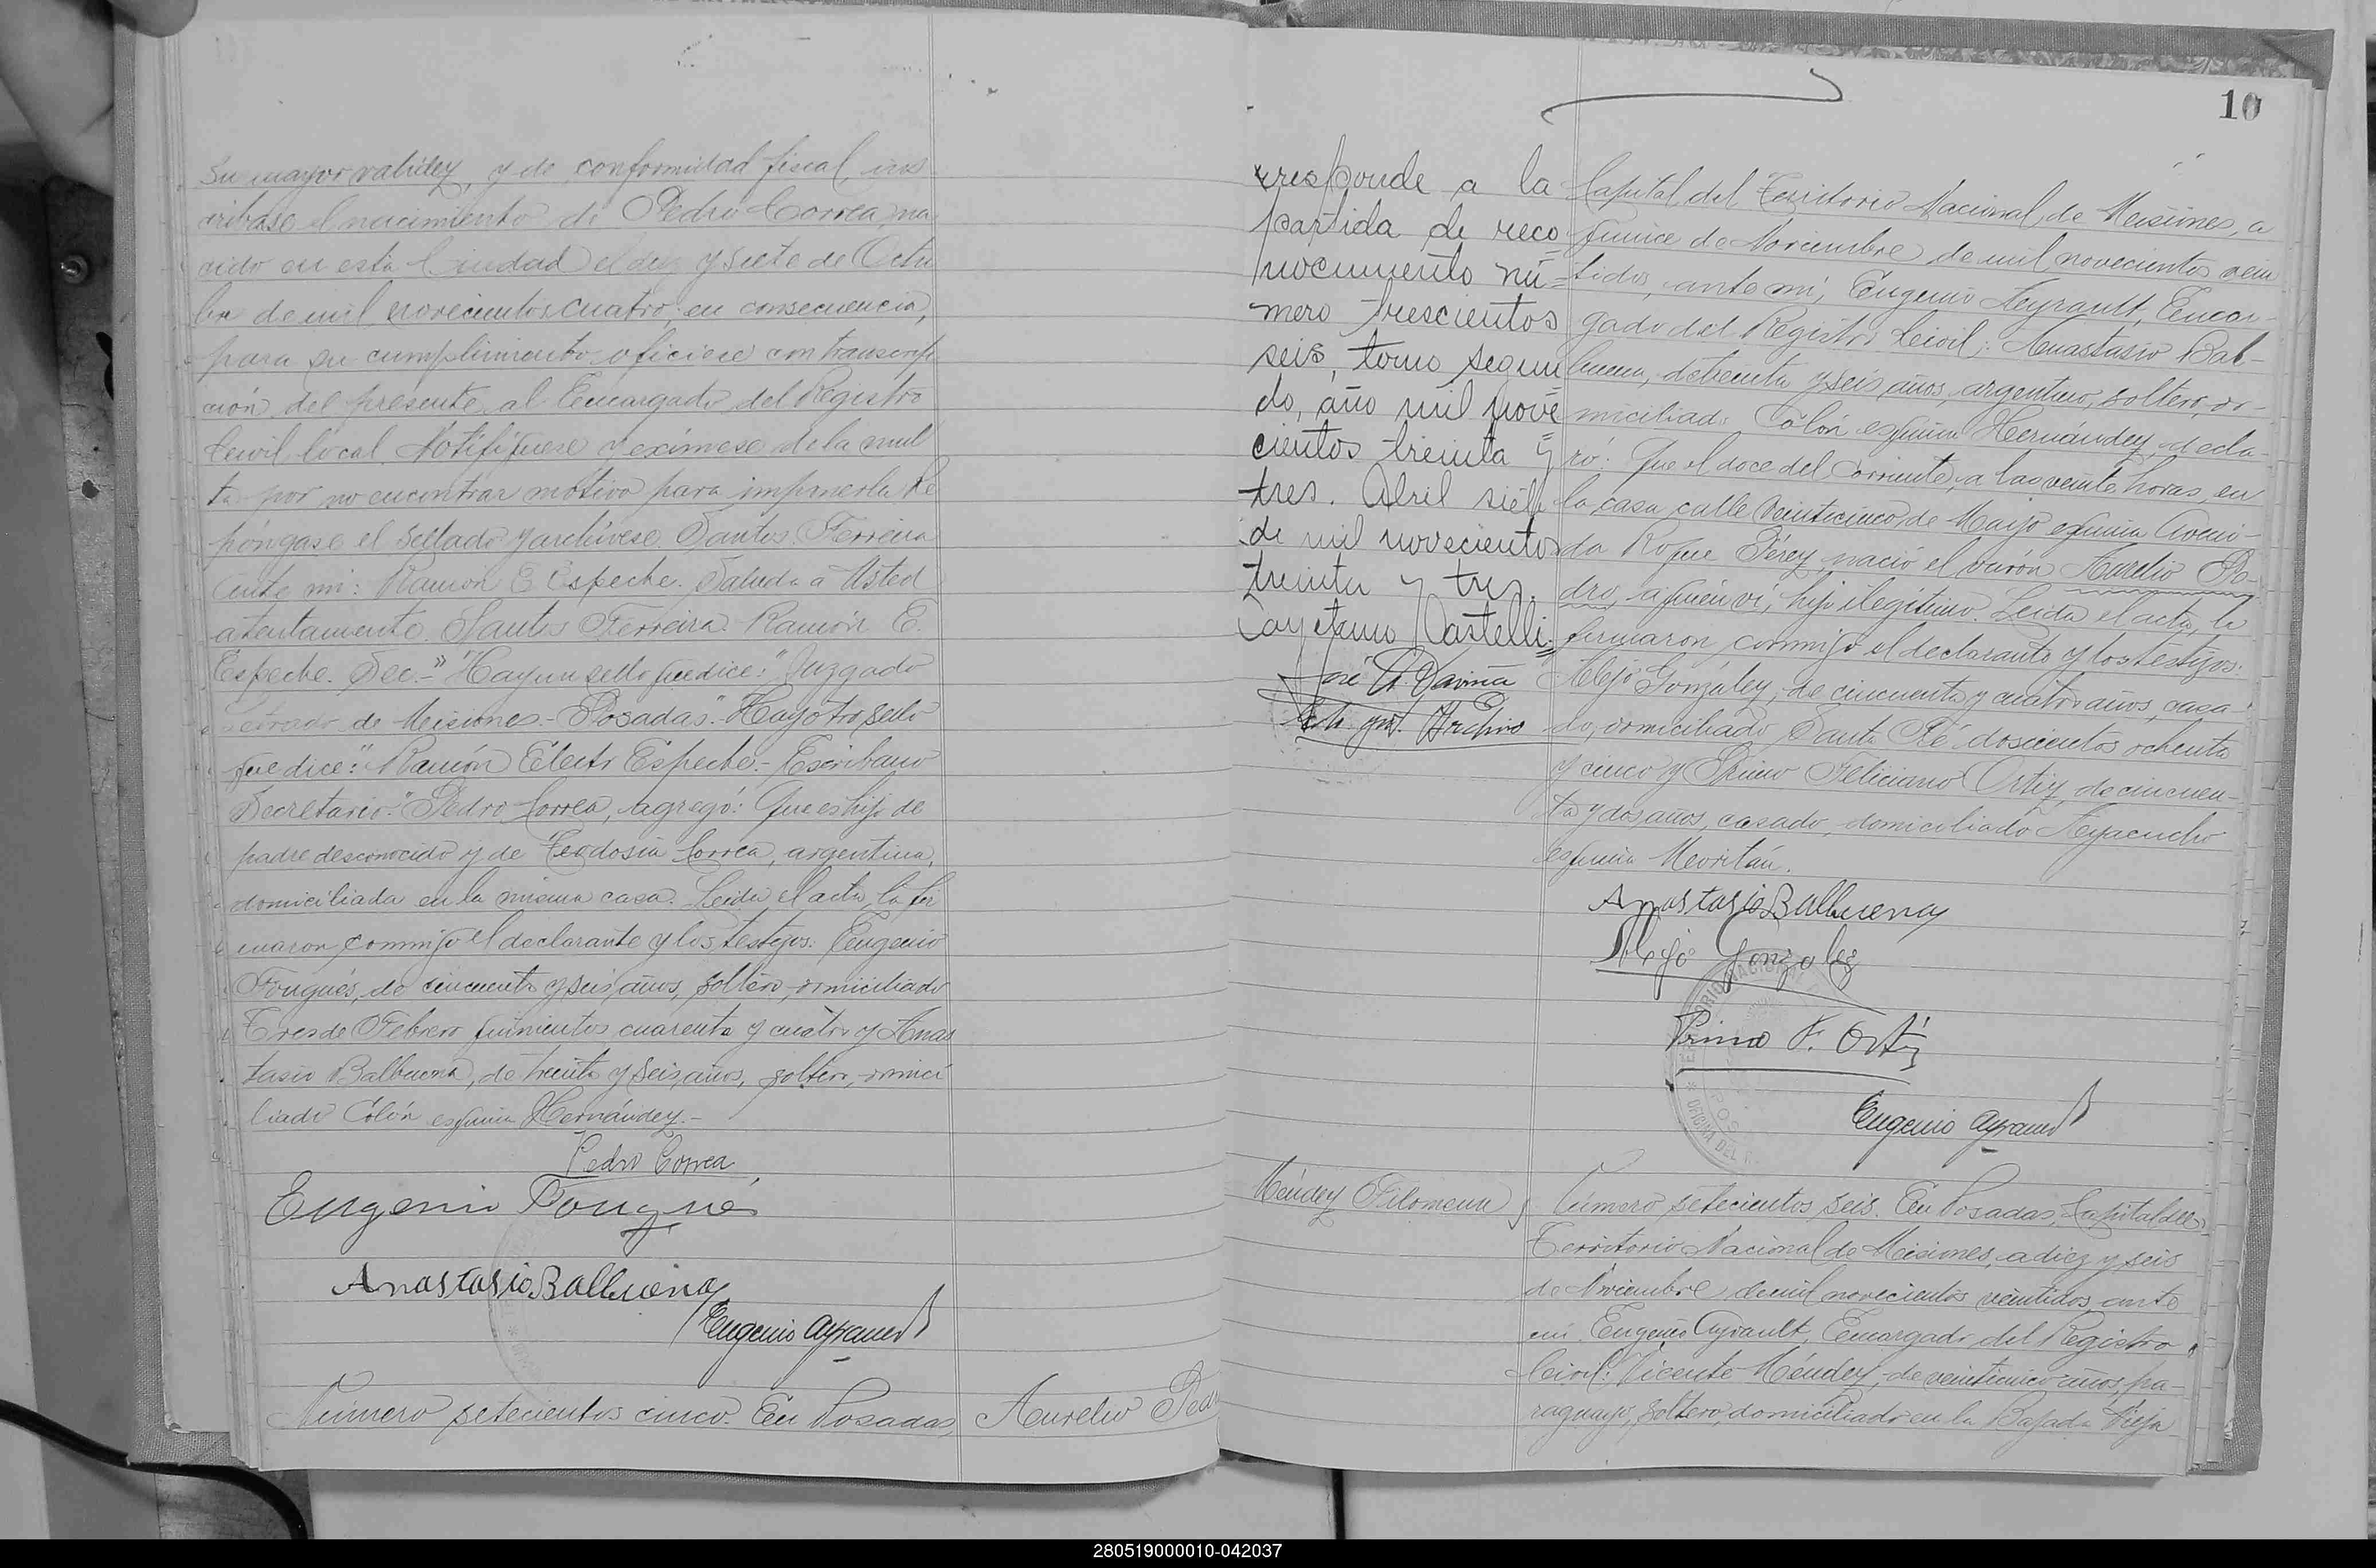 su mayor validez, y de conformidad fiscal, ins
cribase el nacimiento de Pedro Correa, na
cido en esta Ciudad el diez y siete de Octu
bre de mil novecientos cuatro; en consecuencia,
para su cumplimiento oficiese con transcrip
ción del presente al Encargado del Registro
Civil local. Notifíquese y exímese de la mul
ta por no encontrar motivo para imponerla. Re
póngase el sellado y archívese. Santos Ferreira
Ante mi: Ramón E. Espeche. Saluda a Usted
atentamente. Santos Ferreira. Ramón E.
Espeche. Sec.-" "Hay un sello que dice: "Juzgado
Letrado de Misiones.- Posadas." Hay otro sello
que dice: "Ramón Electo Espeche.- Escribano
Secretario." Pedro Correa, agregó: Que es hijo de
padre desconocido y de Teodosia Correa, argentina,
domiciliada en la misma casa. Leida el acta, la fir
maron conmigo el declarante y los testigos: Eugenio
Fouqués, de cincuenta y seis años, soltero, domiciliado
Tres de Febrero quinientos cuarenta y cuatro y Anas
tasio Balbuena, de treinta y seis años, soltero, domici
liado Colón esquina Hernández.-
Pedro Correa
Eugenio Fouqués
Anastasio Balbuena
Eugenio Ayrault
Número setecientos cinco. En Posadas,
Aurelio Ped
10
rresponde a la
partida de reco
nocimiento nú=
mero trescientos
seis, tomo segun
do, año mil nove
cientos treinta y
tres. Abril siete
de mil novecientos
treinta y tres.
Cayetano Martelli
José A. Daviña
Archivo
Capital del Territorio Nacional de Misiones, a
quince de Noviembre de mil novecientos vein
tidos, ante mí, Eugenio Ayrault, Encar-
gado del Registro Civil: Anastasio Bal-
buena, de treinta y seis años, argentino, soltero, do-
miciliado Colón esquina Hernández, decla-
ró: Que el doce del corriente, a las veinte horas, en
la casa calle Veinticinco de Mayo esquina Aveni-
da Roque Pérez, nació el varón Aurelio Pe-
dro, a quien ví, hijo ilegítimo. Leida el acta, la
firmaron conmigo el declarante y los testigos:
Alejo González, de cincuenta y cuatro años, casa
do, domiciliado Santa Fé doscientos ochenta
y cinco y Primo Feliciano Ortiz, de cincuen-
ta y dos años, casado, domiciliado Ayacucho
esquina Tucumán.
Anastasio Balbuena
Alejo Gonzalez
Primo F. Ortiz
Eugenio Ayrault
Méndez Filomena
Número setecientos seis. En Posadas, Capital del
Territorio Nacional de Misiones, a diez y seis
de Noviembre de mil novecientos veintidos, ante
mi, Eugenio Ayrault, Encargado del Registro
Civil: Vicente Méndez, de veinticinco años, pa-
raguayo, soltero, domiciliado en la Bajada Vieja
280519000010-042037